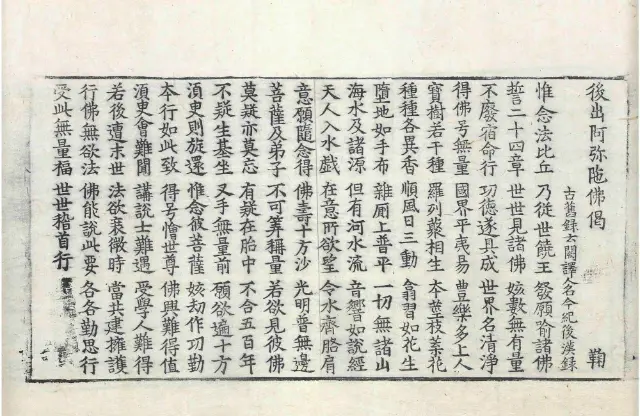 後出阿弥陁佛偈 鞠
古舊錄云闕譯人名今紀後漢錄
惟念法比丘 乃從世饒王 發願喻諸佛
誓二十四章 世世見諸佛 姟數無有量
不廢宿命行 功德遂具成 世界名清淨
得佛号無量 國界平夷易 豊樂多上人
寶樹若干種 羅列叢相生 本莖枝葉花
種種各異香 順風日三動 翕習如花生
墮地如手布 雜厠上普平 一切無諸山
海水及諸源 但有河水流 音響如說經
天人入水戲 在意所欲望 令水齊胳肩
意願隨念得 佛壽十方沙 光明普無邊
菩薩及弟子 不可筭稱量 若欲見彼佛
莫疑亦莫忘 有疑在胎中 不合五百年
不疑生基坐 叉手無量前 願欲遍十方
湏臾則旋還 惟念彼菩薩 姟劫作功勤
本行如此致 得号懀世尊 佛興難得值
湏臾會難聞 講說士難遇 受學人難得
若後遭末世 法欲衰微時 當共建擁護
行佛無欲法 佛能說此要 各各勤思行
受此無量福 世世稽首行